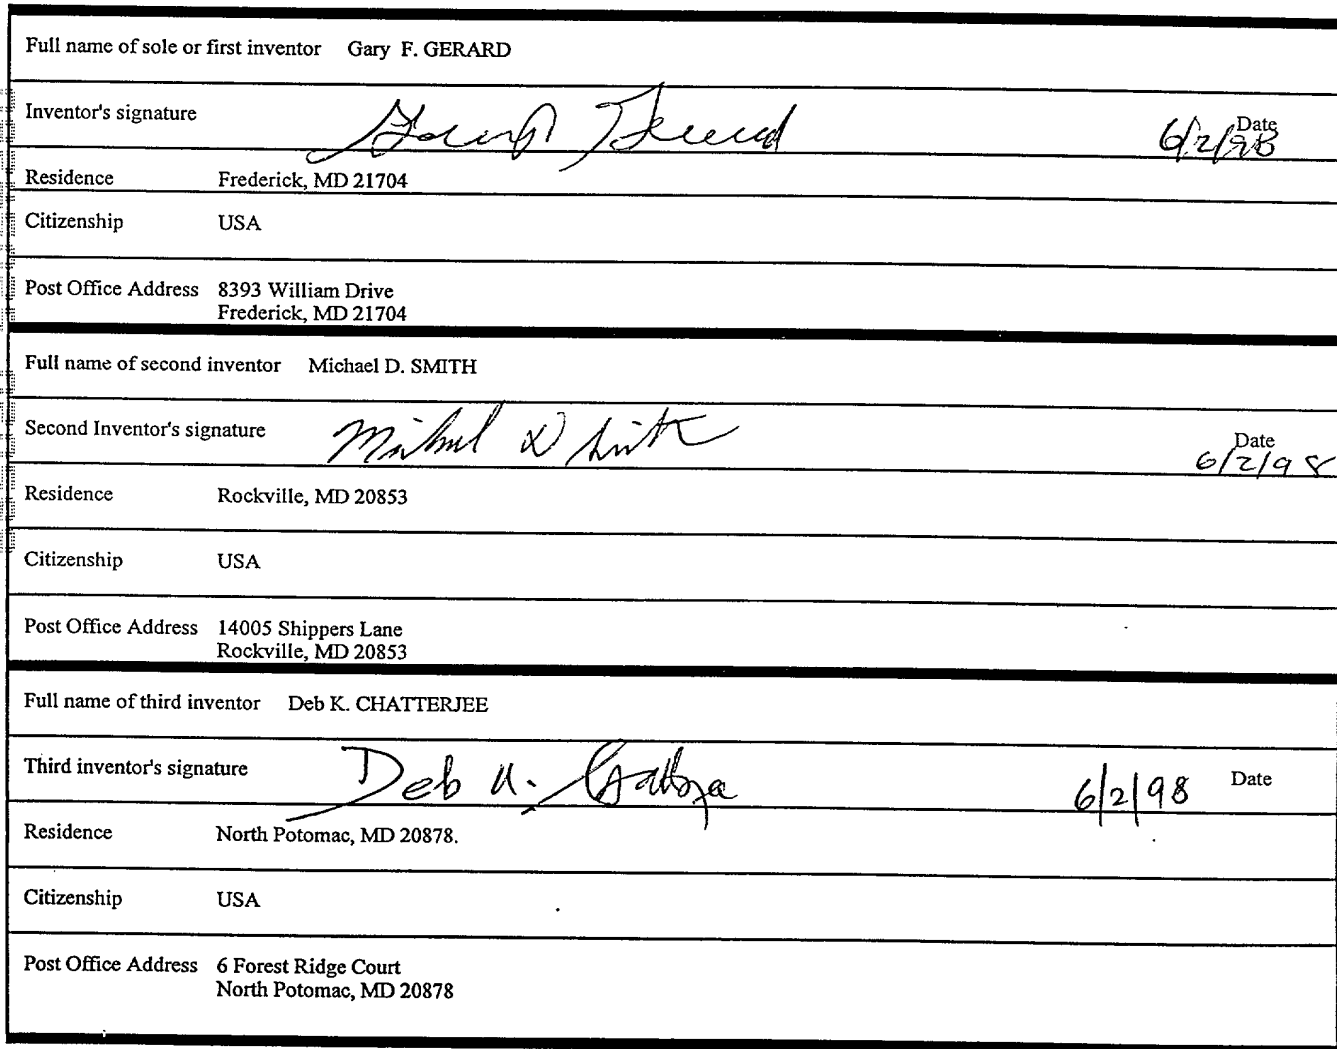 Full name of sole or first inventor Gary F. GERARD
Inventor's signature Gary F Gerard 6/2/98 Date
Residence Frederick, MD 21704
Citizenship USA
Post Office Address 8393 William Drive
Frederick, MD 21704
Full name of second inventor Michael D. SMITH
Second Inventor's signature Michael D Smith Date
6/2/98
Residence Rockville, MD 20853
Citizenship USA
Post Office Address 14005 Shippers Lane
Rockville, MD 20853
Full name of third inventor Deb K. CHATTERJEE
Third inventor's signature Deb K. Chatterjee 6/2/98 Date
Residence North Potomac, MD 20878.
Citizenship USA
Post Office Address 6 Forest Ridge Court
North Potomac, MD 20878